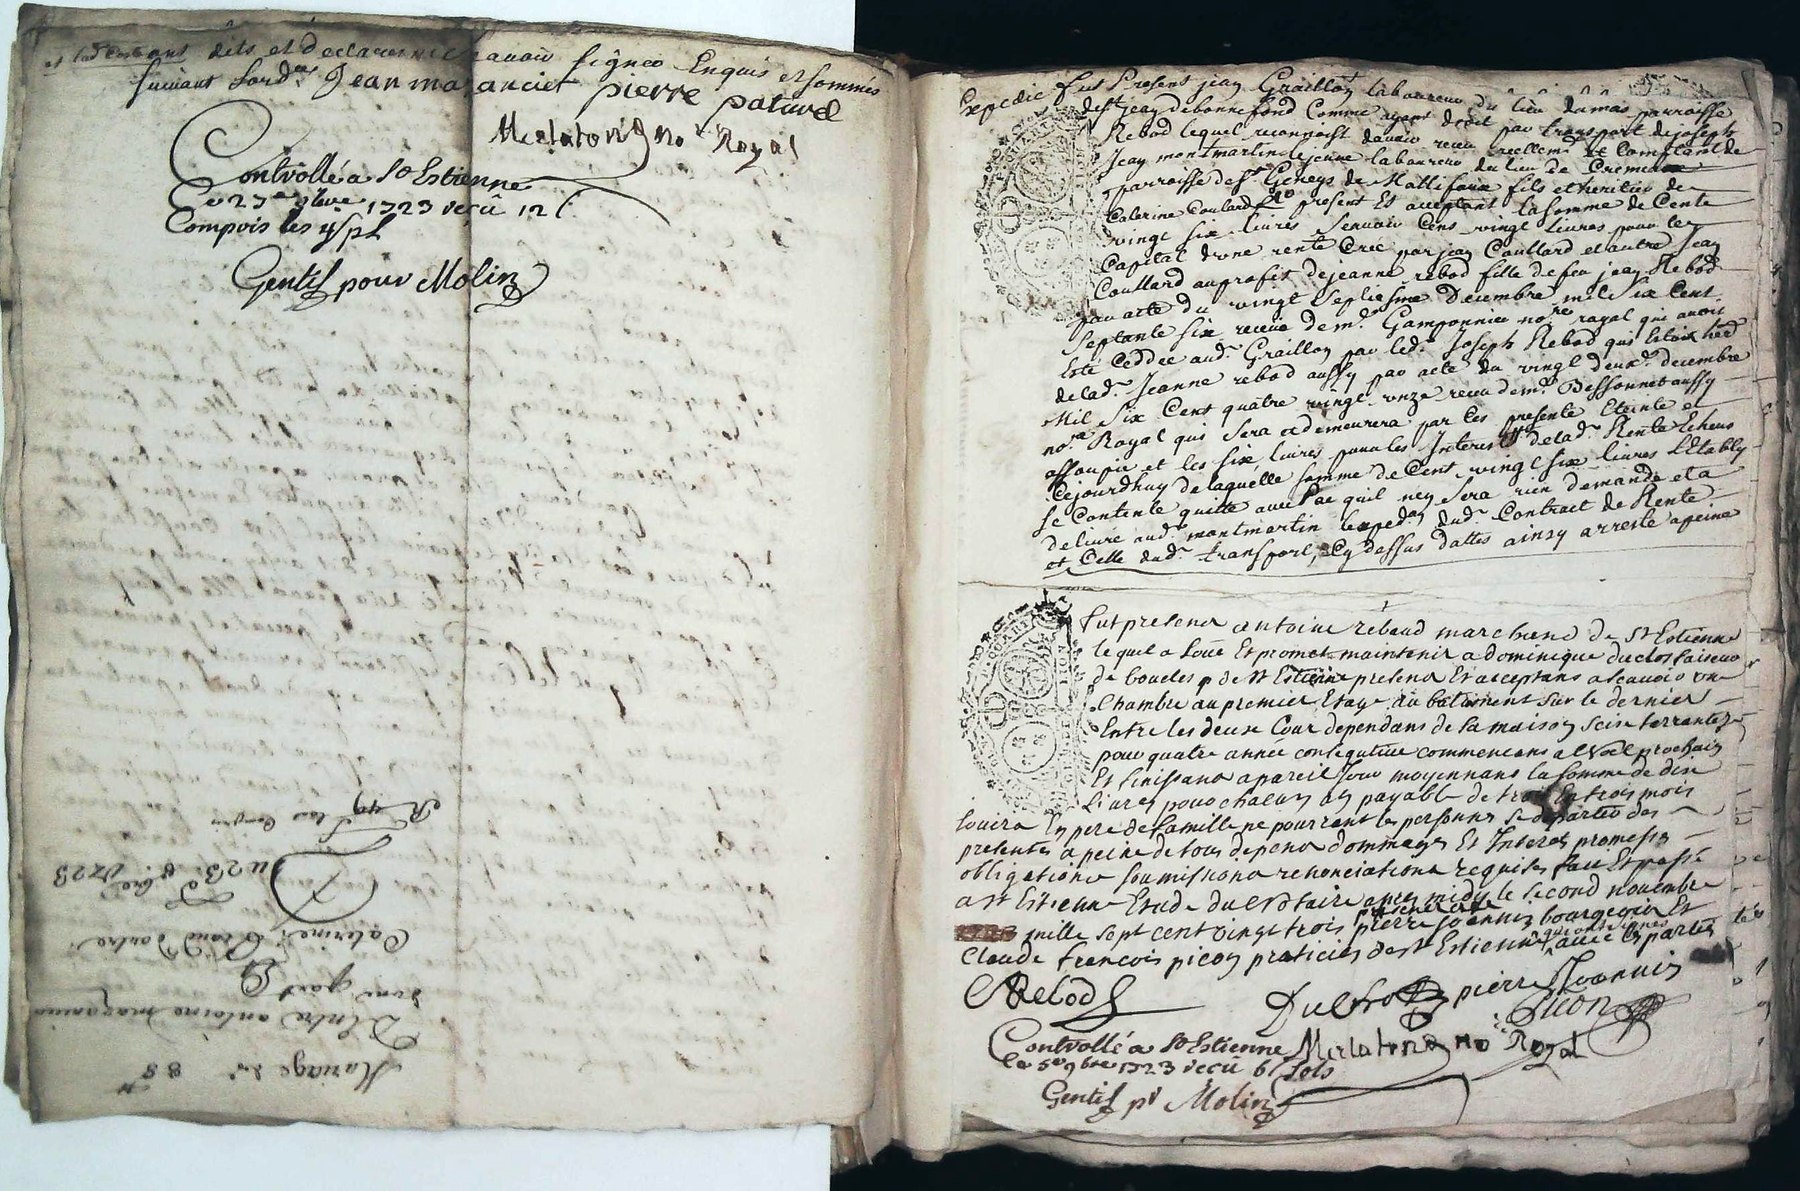 dits et declarent avoir signée Enquis et sommés
suivant lordce Jean mazanciet pierre paturel
Merlaton no Royal
Controllé a St Estienne
Ce 27e 9bre 1723 reçû 12 s
Compris les 4s pl
Gentil pour Molin
Expedié fut Present jean Graillon laboureur du lieu de mas parroisse
de st jean de bonnefond Comme ayant droit par transport de joseph
Rebod lequel reconnoist davoir receu reellemt et Comptant de
Jean montmartin lejeune laboureur du lieu de Crem
parroisse de st Geneys de Mallifaux fils et heritier de
Caterine Coulard present Et acceptant la somme de Cente
vingt six livres scavoir Cens vingt livres pour le
Capital d'une rente Créé par jean Coullard et autre Jean
Coullard au profit de jeanne rebod fille de feu jean Rebod
par acte du vingt septiesme Decembre mil six Cent
septante six receue de me Gamponnier nore royal qui avoit
Esté Ceddée audt Graillon par ledt Joseph Rebod qui Estoit hed
de ladte Jeanne rebod aussy par acte du vingt deuxe decembre
Mil Six Cent quatre vingt onze receu de me Bessonnet aussy
nore Royal qui sera et demeurera par les presente Eteinte et
assoupie et les six livres pour les Interest de ladte Rente Echeus
Cejourdhuy de laquelle somme de Cent vingt six livres
se Contente quitte avec Pac quil ney sera rien demandé et a
delivré audt montmartin lexpedon dudt Contract de Rente
et Celle dudt transport, Cy dessus dattés ainsy arresté a peine
fut presend antoine reboud marchand de St Estienne
lequel a loué Et promet maintenir a dominique duclos faiseur
de boucles de St Estienne presend Et acceptans a scavoir une
Chambre au premier Etage du batiment sur le dernier
Entre les deux Cour dependans de sa maison scise
pour quatre année consequtive commencans a Noel prochain
Et finissans a pareil jour moyennans la somme de dix
Livres pour chacun an payable de trois En trois mois
jouira En pere de famille ne pourront les personnes se departir des
presentes a peine de tous depens dommages Et Interes promesses
obligations soumissions renonciations requises fait Et passé
a st Estienne Etude du Notaire apres midy le second novembre
mille sept cent vingt trois presence de pierre Joannin bourgeois Et
Claude francois picon praticien de st Estienne qui ont signé avec les parties
Rebod
Duclos pierre Joannin
Picon
Controllé a St Estienne Merlaton no Royal
Le 5e 9bre 1723 reçû 6 sols
Gentil pr Molin
Mariage du 88
D'Entre antoine mazanciet
d'une part
Et
Caterine Beraud d'autre
Du 23. 8bre 1723